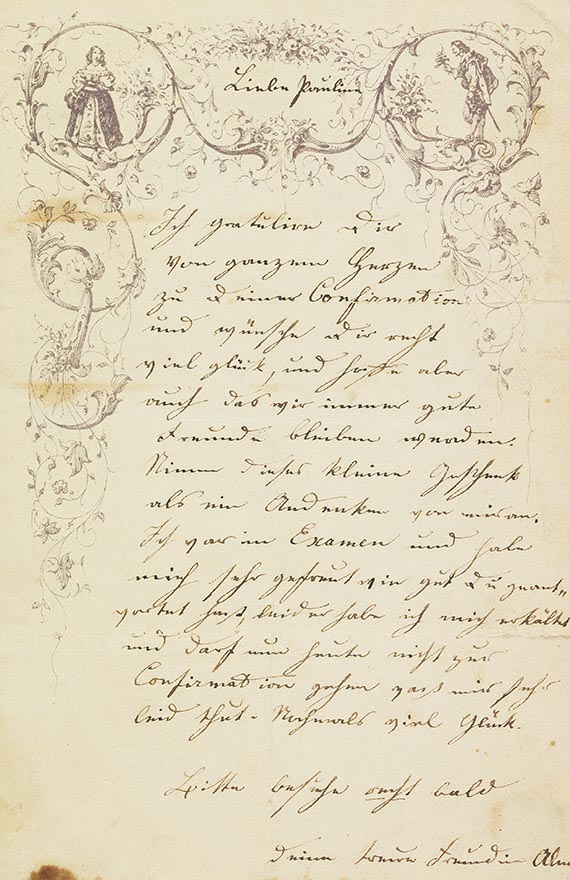 Liebe Pauline
Ich gratulire Dir
von ganzem Herzen
zu Deiner Confirmation
und wünsche Dir recht
viel glück, und hoffe aber
auch das wir immer gute
Freunde bleiben werden.
Nimm dieses kleine Geschenk
als ein Andenken von mir an.
Ich war im Examen und habe
mich sehr gefreut wie gut Du geant„
wortet hast, leider habe ich mich erkältet
und darf nun heute nicht zur
Confirmation gehen was mir sehr
leid thut. Nochmals viel Glück.
Bitte besuche recht bald
Deine treue Freundin